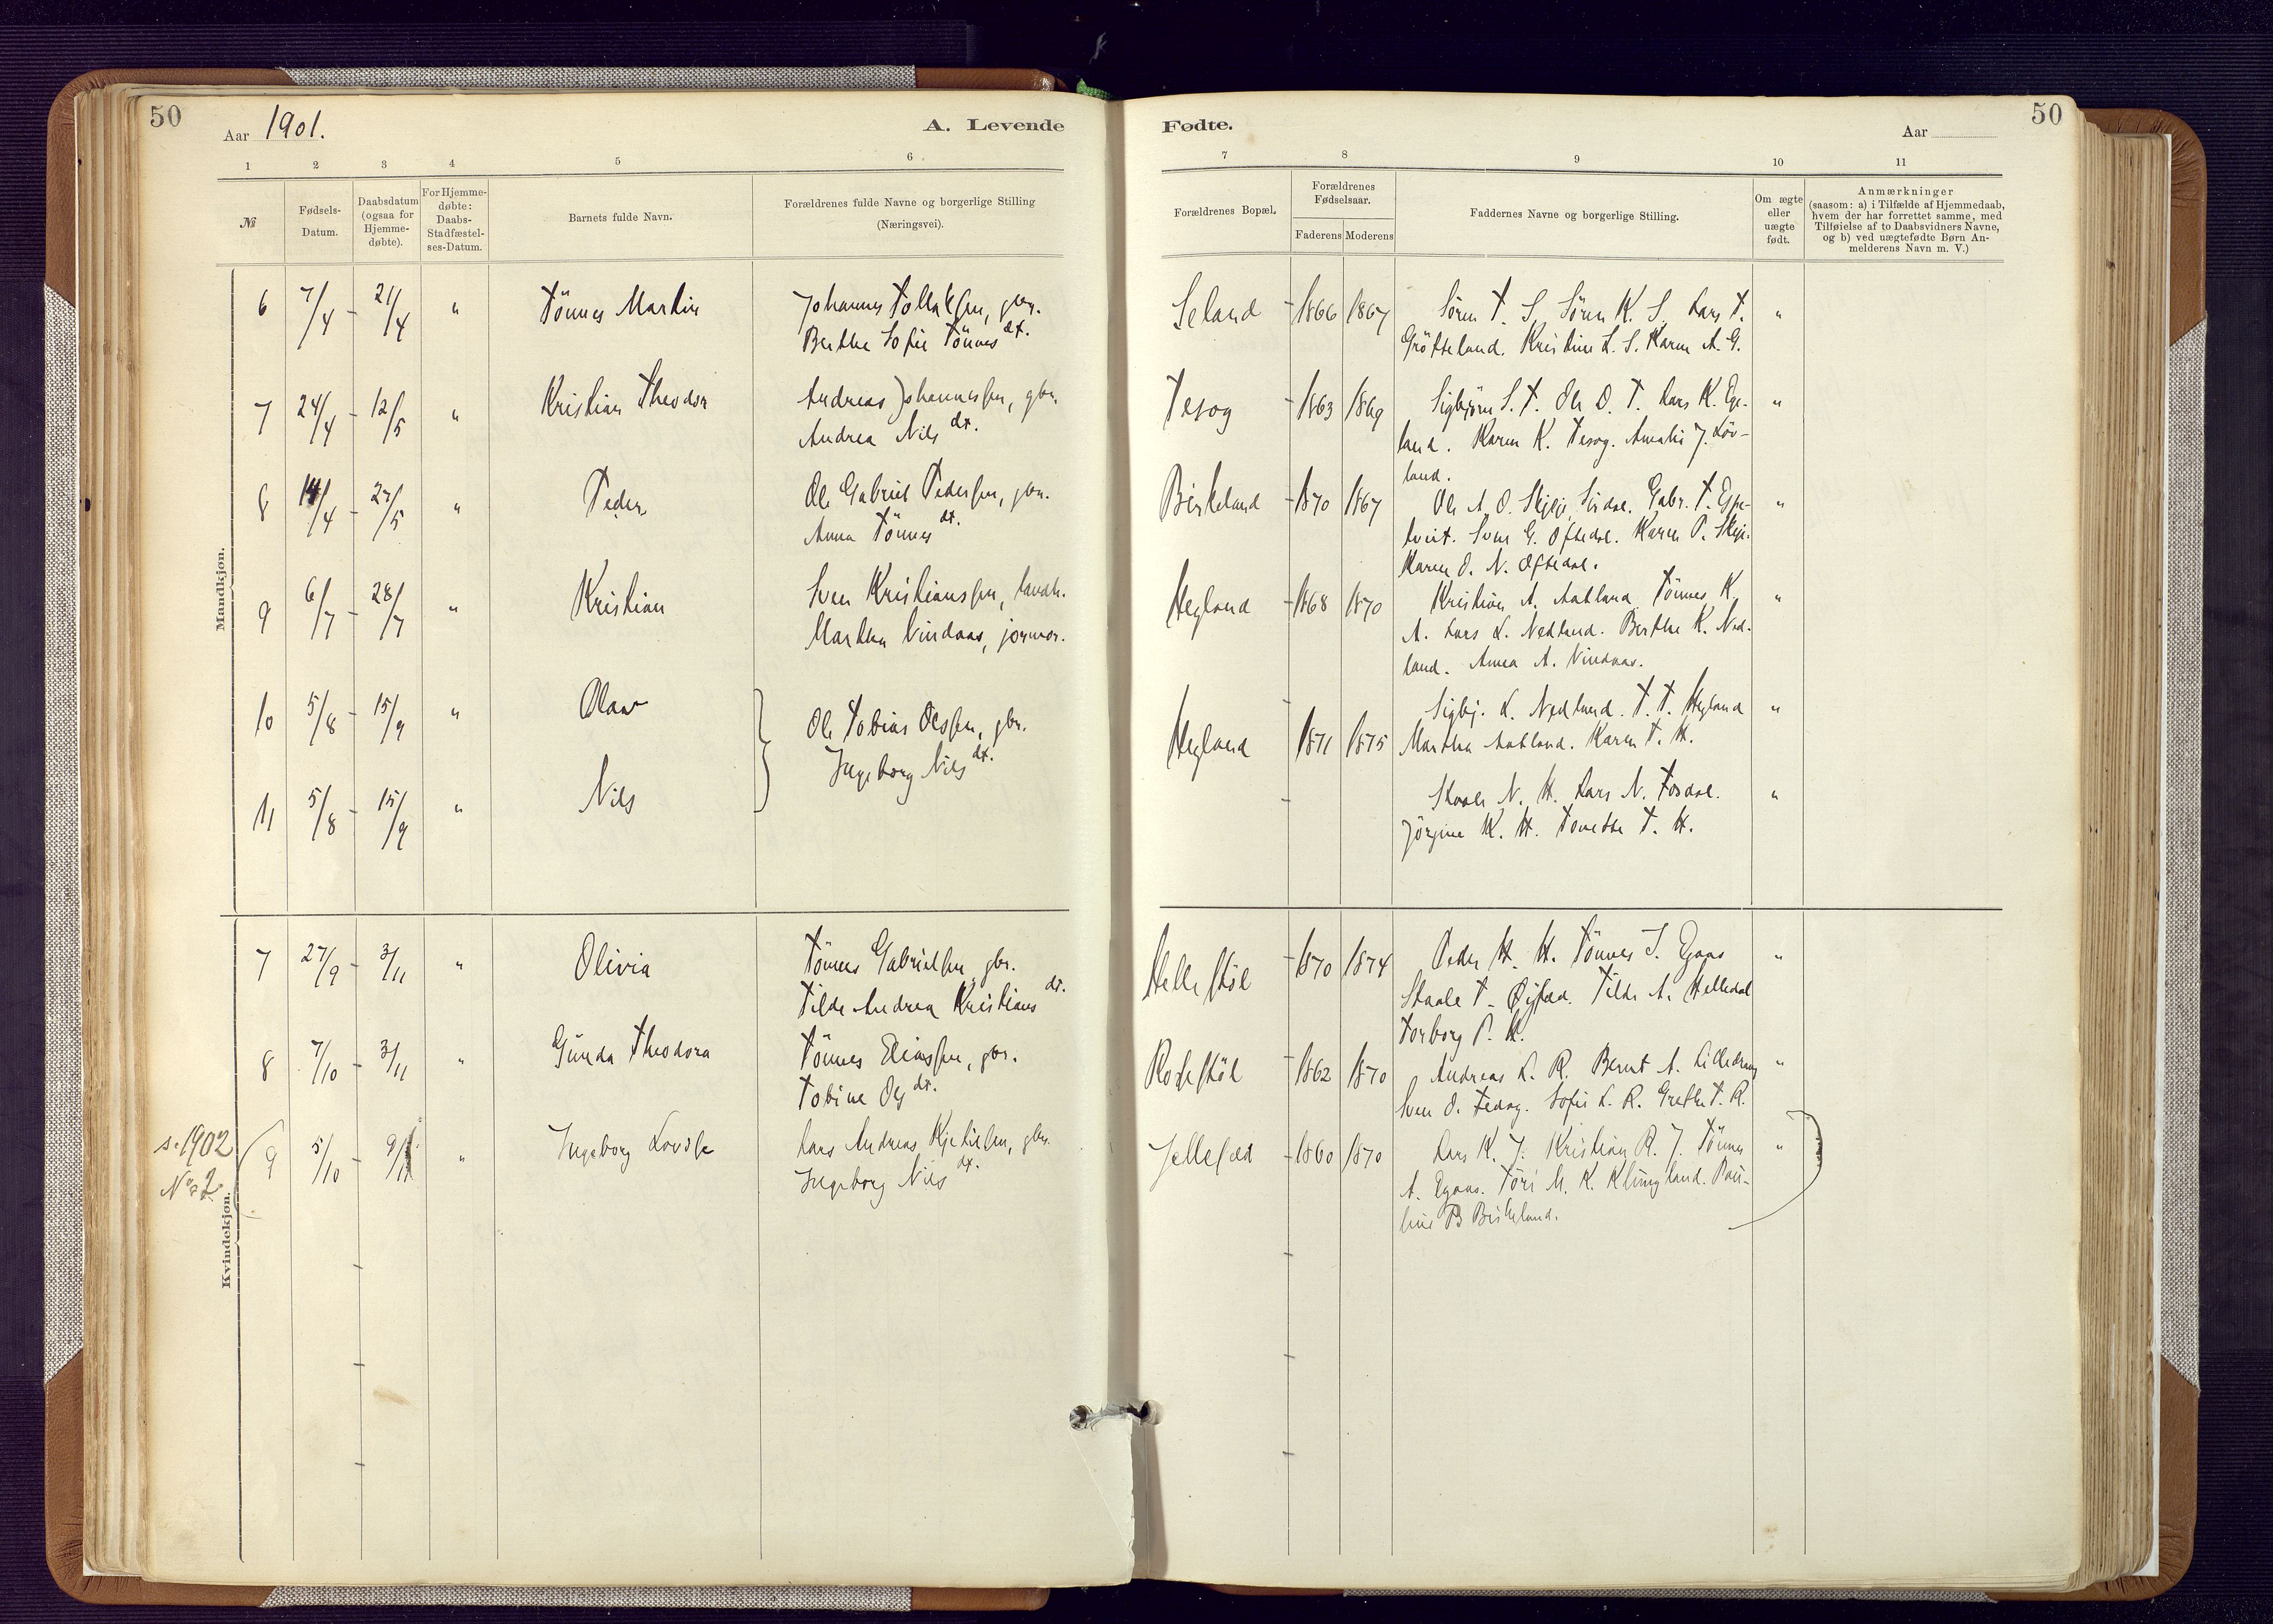 50
Aar 1901.
A. Levende
1 2 3 4 5 6
№
Fødsels-
Datum.
Daabsdatum
(ogsaa for
Hjemme-
døbte).
For Hjemme-
døbte:
Daabs-
Stadfæstel-
ses-Datum.
Barnets fulde Navn.
Forældrenes fulde Navne og borgerlige Stilling
(Næringsvei).
Mandkjøn.
6 7/4 - 21/4 " Tönnes Martin
Johannes Tollaksen, gbr.
Berthe Sofie Tönnesdt.
7 24/4 - 12/5 " Kristian Theodor
Andreas Johannessen, gbr.
Andrea Nilsdt.
8 14/4 - 27/5 " Peder
Ole Gabriel Pedersen, gbr.
Anna Tönnesdt.
9 6/7 - 28/7 " Kristian
Sven Kristianssen, landh.
Martha Vindaas, jormor.
10 5/8 - 15/9 " Olav
Ole Tobias Olssen, gbr.
Ingeborg Nilsdt.
11 5/8 - 15/9 " Nils
Kvindekjøn.
7 27/9 - 3/11 " Olivia
Tönnes Gabrielsen, gbr.
Tilde Andrea Kristiansdt.
8 7/10 - 3/11 " Gunda Theodora
Tönnes Eliassen, gbr.
Tobine Olsdt.
s. 1902
No 2
9 5/10 - 9/11 " Ingeborg Lovise
Lars Andreas Kjetilsen, gbr.
Ingeborg Nilsdt.
Fødte.
Aar
50
7 8 9 10 11
Forældrenes Bopæl.
Forældrenes
Fødselsaar.
Faderens Moderens
Faddernes Navne og borgerlige Stilling.
Om ægte
eller
uægte
født.
Anmærkninger
(saasom: a) i Tilfælde af Hjemmedaab,
hvem der har forrettet samme, med
Tilføielse af to Daabsvidners Navne,
og b) ved uægtefødte Børn An-
melderens Navn m. V.)
Seland - 1866 1867 Sören T. S. Sören K. S. Lars T. "
Gröfseland. Kristine L. S. Karen A. G.
Tesog - 1863 1869 Sigbjörn S. T. Ole O. T. Lars K. Ege- "
land. Karen K. Tesog. Amalie J. Löv-
land.
Birkeland - 1870 1867 Ole A. O. Sirdal. Gabr. T. Espe- "
tveit. Sven G. Oftedal. Karen P.
Karen O. N. Oftedal.
Hegland - 1868 1870 Kristian A. Aabland. Tönnes K. "
A. Lars L. Nedland. Berthe K. Ned-
land. Anna A. Vindaas.
Sigbj. L. Nedland. T. T. Hegland "
Hegland 1871 1875 Martha Aabland. Karen T. H.
Staale N. H. Lars N. Tosdal. "
Jörgine K. H. Tonette T. H.
Hellestöl - 1870 1874 Peder H. H. Tönnes S. Egaas "
Staale T. Tilde A. Helledal
Torborg P. H.
- 1862 1870 Andreas L. R. Bernt A. "
Sven O. Tedog. Sofie L. R. Grethe T. R.
- 1860 1870 Lars K. J. Kristian R. J. Tönnes "
A. Egaas. Töri M. K. Klungland. Pau-
line B Birkeland.